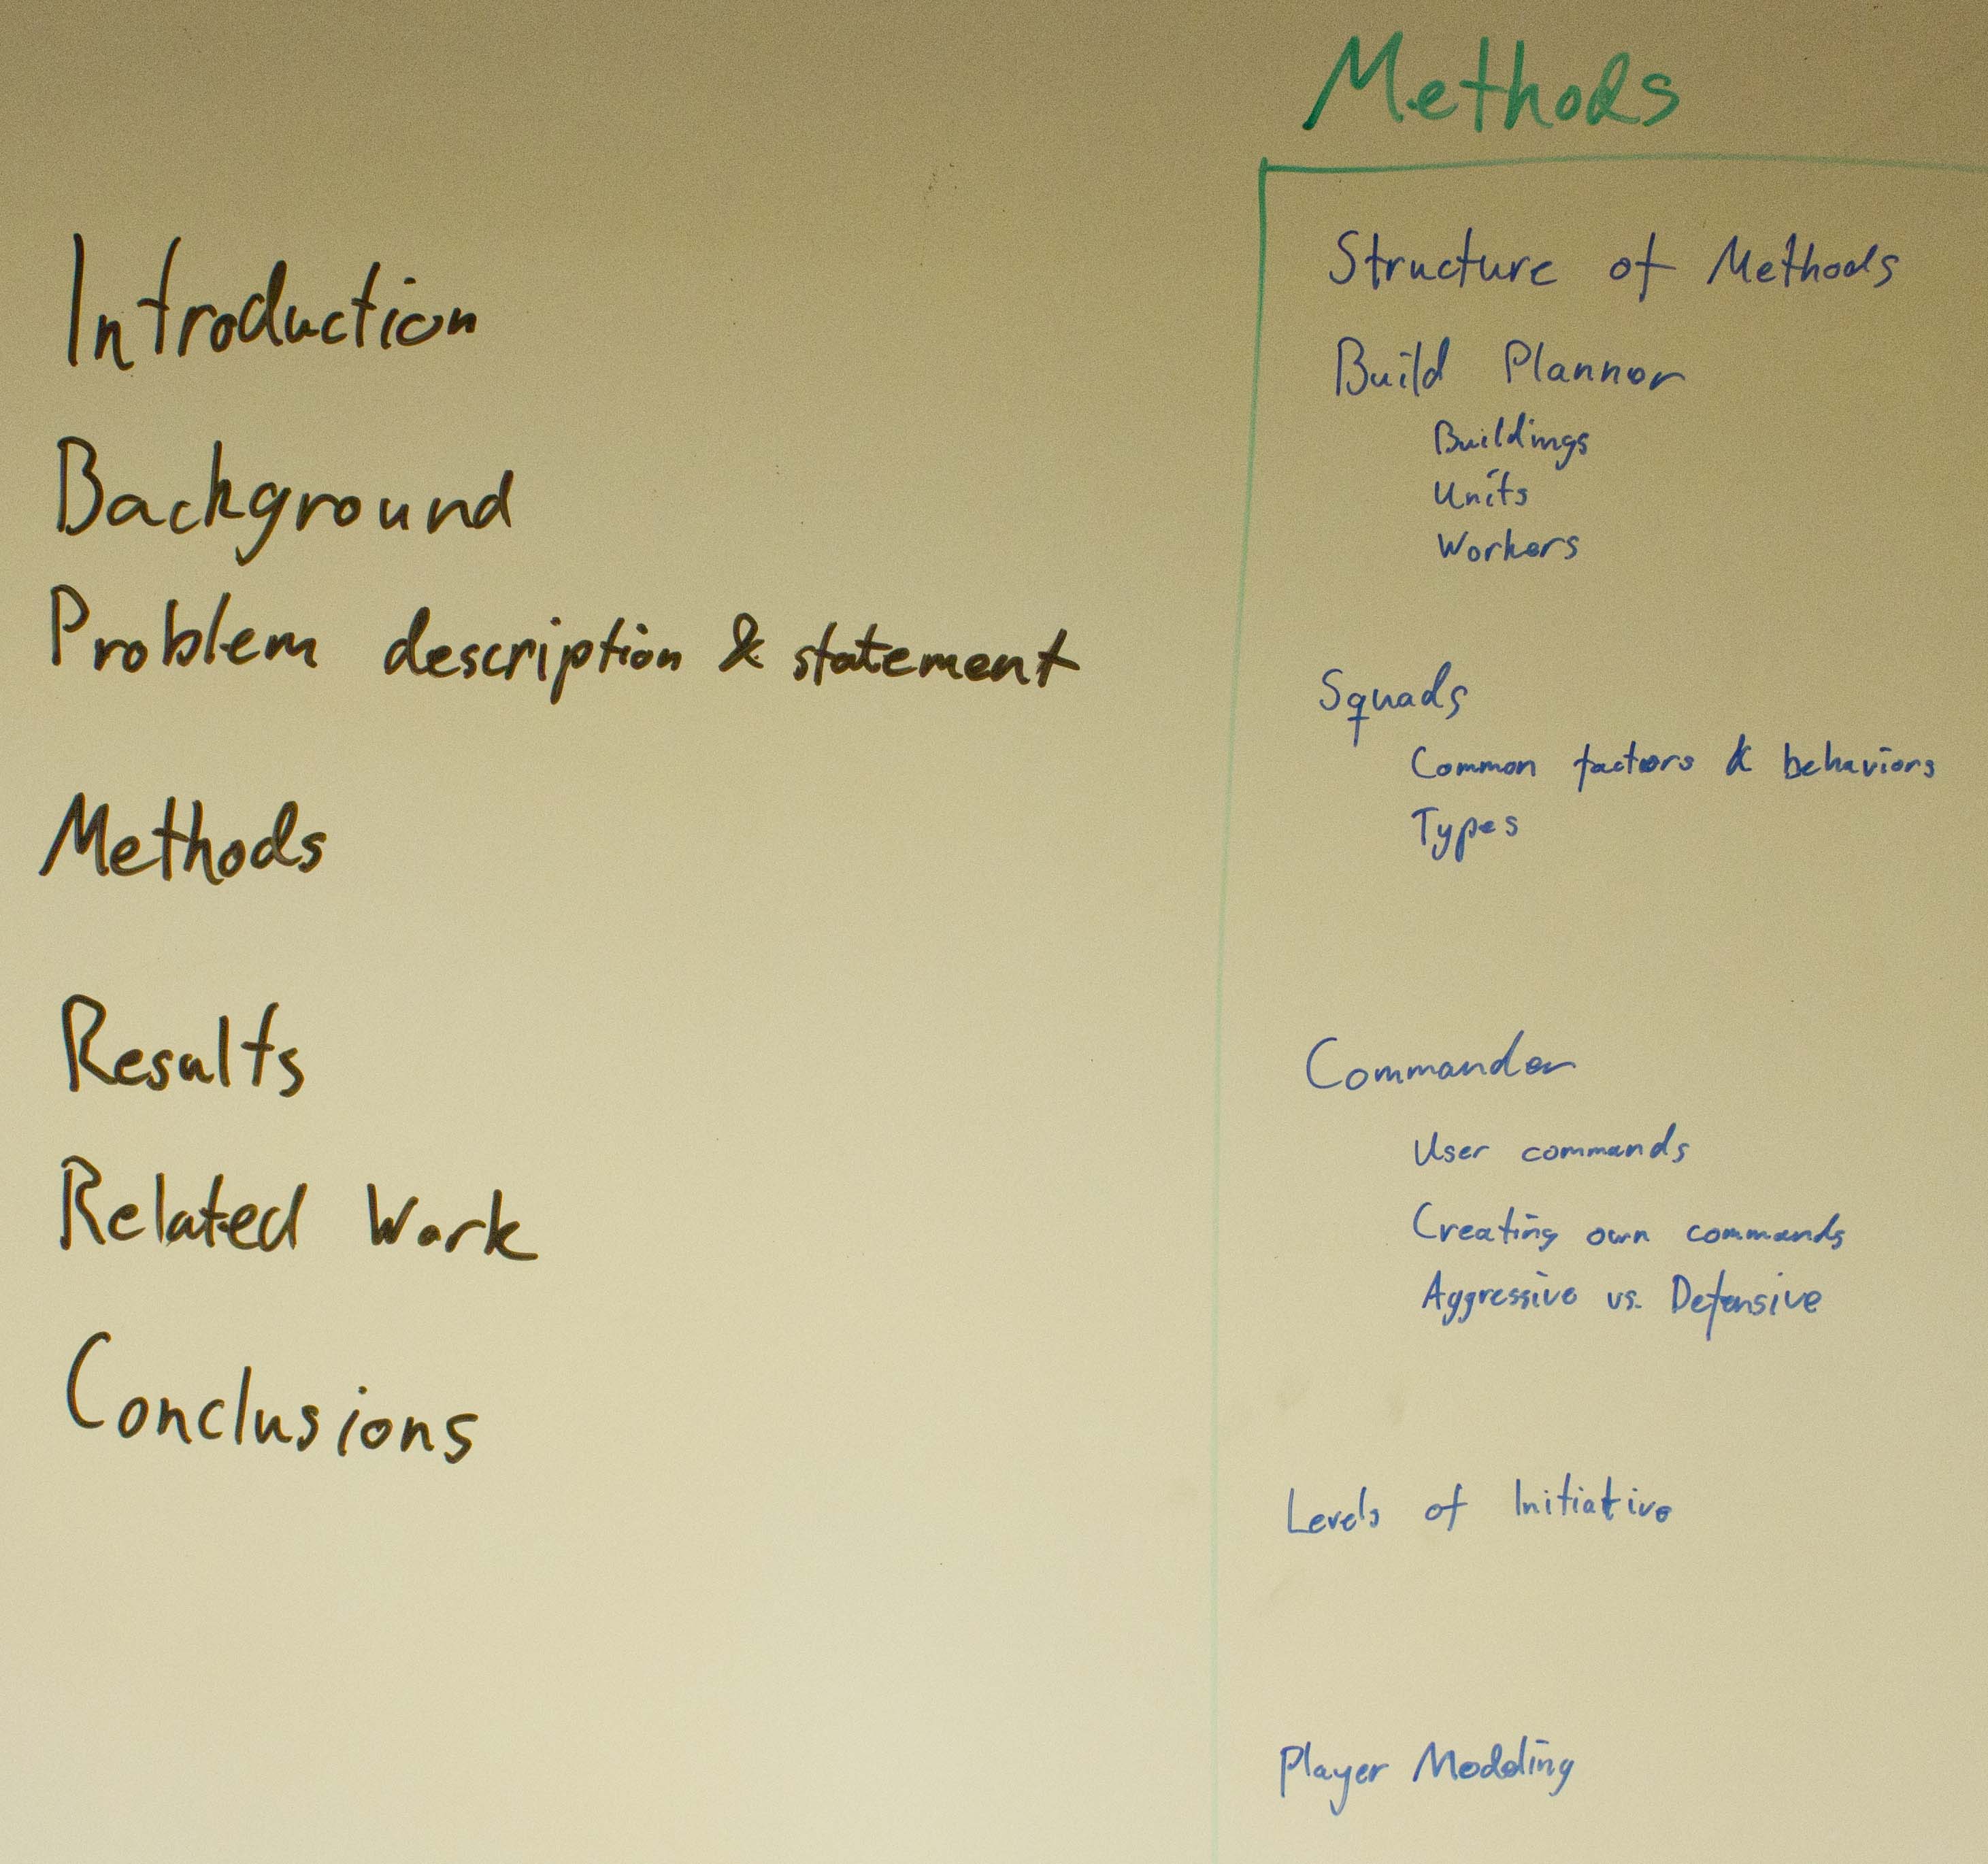 Introduction
Background
Problem description & statement
Methods
Results
Related Work
Conclusions
Methods
Structure of Methods
Build Planner
Buildings
Units
Workers
Squads
Common factors & behaviors
Types
Commander
User commands
Creating own commands
Aggressive vs. Defensive
Levels of Initiative
Player Modding